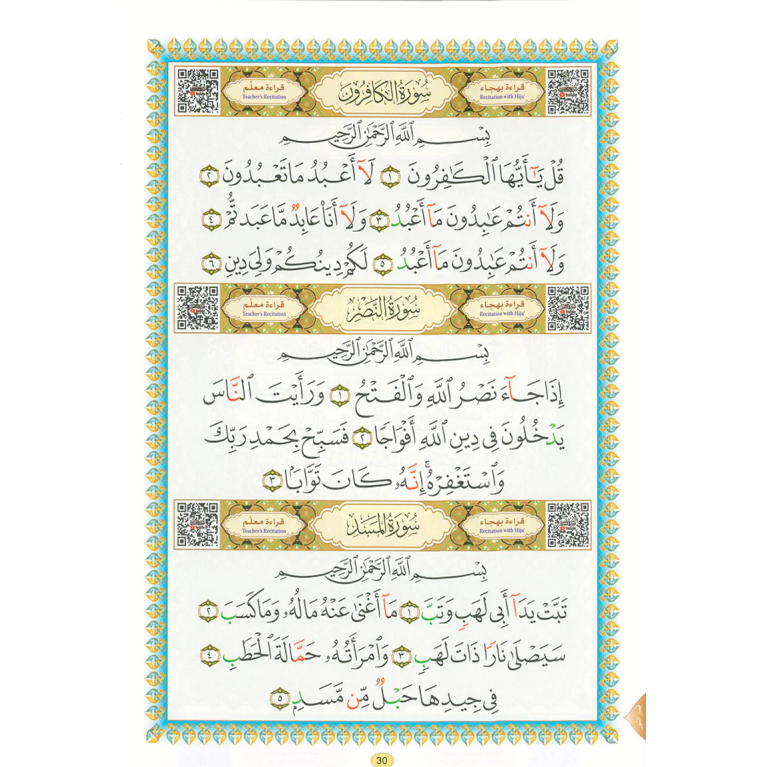 قراءة بهجاء
Recitation with Hija'
سُورَةُ الكَافِرُونَ
قراءة معلّم
Teacher's Recitation
بِسْمِ ٱللَّهِ ٱلرَّحْمَٰنِ ٱلرَّحِيمِ
قُلْ يَٰٓأَيُّهَا ٱلْكَٰفِرُونَ ١ لَآ أَعْبُدُ مَا تَعْبُدُونَ ٢
وَلَآ أَنتُمْ عَٰبِدُونَ مَآ أَعْبُدُ ٣ وَلَآ أَنَا۠ عَابِدٌ مَّا عَبَدتُّمْ ٤
وَلَآ أَنتُمْ عَٰبِدُونَ مَآ أَعْبُدُ ٥ لَكُمْ دِينُكُمْ وَلِىَ دِينِ ٦
قراءة بهجاء
Recitation with Hija'
سُورَةُ النَّصْرِ
قراءة معلّم
Teacher's Recitation
بِسْمِ ٱللَّهِ ٱلرَّحْمَٰنِ ٱلرَّحِيمِ
إِذَا جَآءَ نَصْرُ ٱللَّهِ وَٱلْفَتْحُ ١ وَرَأَيْتَ ٱلنَّاسَ
يَدْخُلُونَ فِى دِينِ ٱللَّهِ أَفْوَاجًا ٢ فَسَبِّحْ بِحَمْدِ رَبِّكَ
وَٱسْتَغْفِرْهُ ۚ إِنَّهُۥ كَانَ تَوَّابًۢا ٣
قراءة بهجاء
Recitation with Hija'
سُورَةُ المَسَدِ
قراءة معلّم
Teacher's Recitation
بِسْمِ ٱللَّهِ ٱلرَّحْمَٰنِ ٱلرَّحِيمِ
تَبَّتْ يَدَآ أَبِى لَهَبٍ وَتَبَّ ١ مَآ أَغْنَىٰ عَنْهُ مَالُهُۥ وَمَا كَسَبَ ٢
سَيَصْلَىٰ نَارًا ذَاتَ لَهَبٍ ٣ وَٱمْرَأَتُهُۥ حَمَّالَةَ ٱلْحَطَبِ ٤
فِى جِيدِهَا حَبْلٌ مِّن مَّسَدٍۭ ٥
30